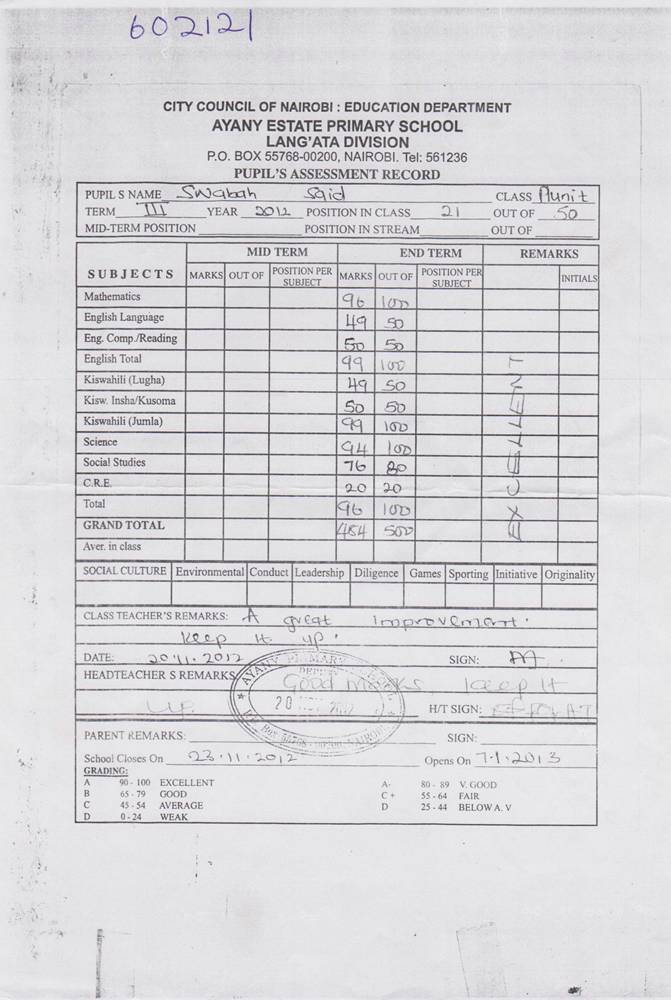 602121
CITY COUNCIL OF NAIROBI : EDUCATION DEPARTMENT
AYANY ESTATE PRIMARY SCHOOL
LANG'ATA DIVISION
P.O. BOX 55768-00200, NAIROBI. Tel: 561236
PUPIL'S ASSESSMENT RECORD
PUPIL S NAME Swabah Said CLASS
TERM III YEAR 2012 POSITION IN CLASS 21 OUT OF 50
MID-TERM POSITION POSITION IN STREAM OUT OF
MID TERM END TERM REMARKS
SUBJECTS MARKS OUT OF POSITION PER SUBJECT MARKS OUT OF POSITION PER SUBJECT INITIALS
Mathematics 96 100
English Language 49 50
Eng. Comp./Reading 50 50
English Total 99 100
Kiswahili (Lugha) 49 50
Kisw. Insha/Kusoma 50 50
Kiswahili (Jumla) 99 100
Science 94 100
Social Studies 76 80
C.R.E. 20 20
Total 96 100
GRAND TOTAL 484 500
EXCELLENT
Aver. in class
SOCIAL CULTURE Environmental Conduct Leadership Diligence Games Sporting Initiative Originality
CLASS TEACHER'S REMARKS: A great improvement.
keep it up.
DATE: 20.11.2012 SIGN:
HEADTEACHER S REMARKS Good marks keep it
up. H/T SIGN:
PARENT REMARKS: SIGN:
School Closes On 23.11.2012 Opens On 7.1.2013
GRADING:
A 90 - 100 EXCELLENT A- 80 - 89 V. GOOD
B 65 - 79 GOOD C + 55 - 64 FAIR
C 45 - 54 AVERAGE D 25 - 44 BELOW A. V
D 0 - 24 WEAK